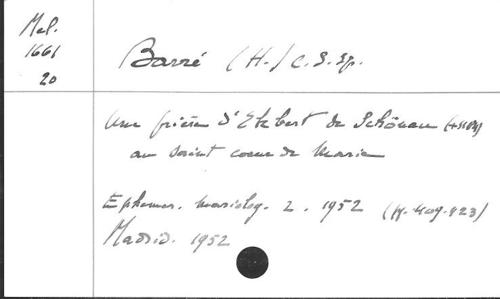 Mel.
1661
20
Barré (H.) C.S.Sp.
Une prière d'Ekbert de Schönau (+1184)
au saint coeur de Marie
Ephemer. mariolog. 2. 1952 (p. 409-423)
Madrid. 1952